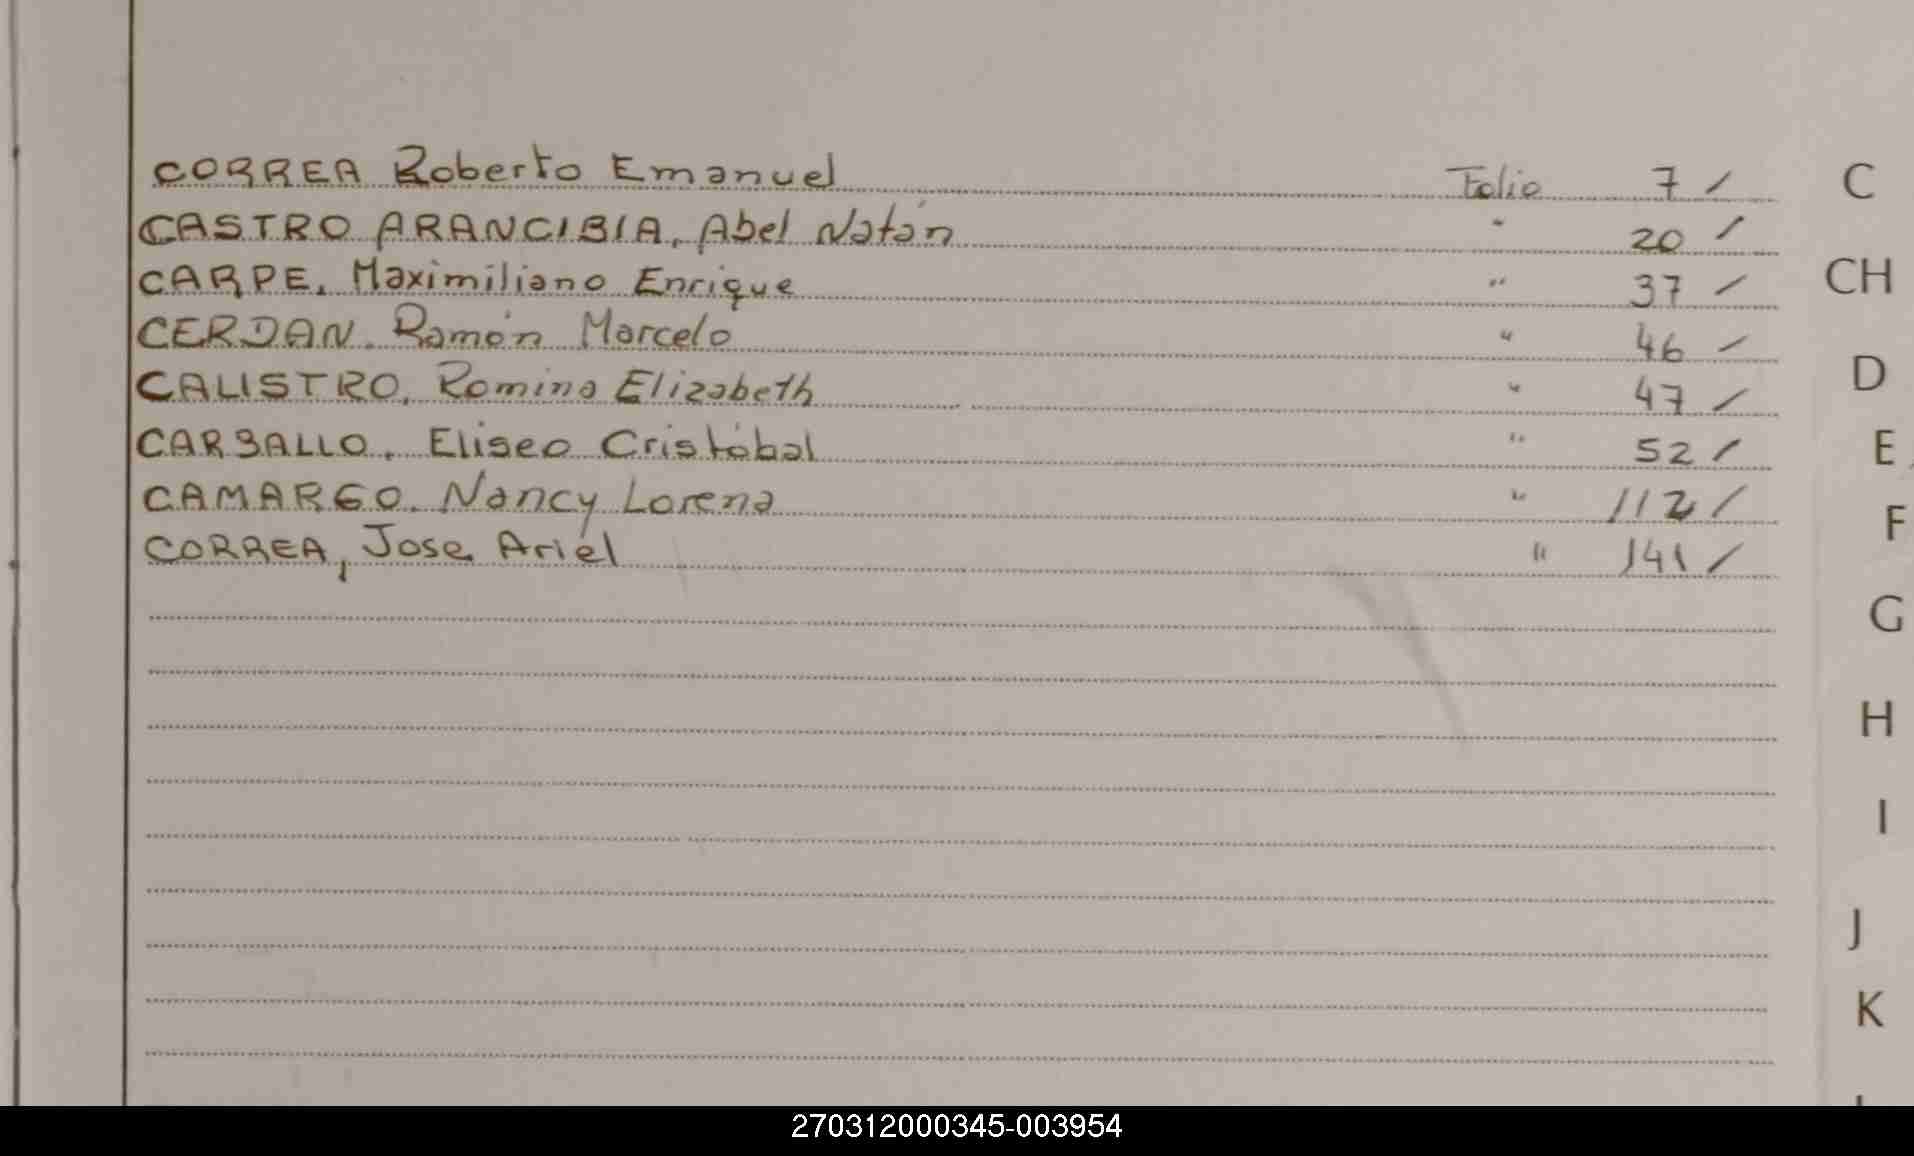 CORREA Roberto Emanuel Folio 7 /
CASTRO ARANCIBIA, Abel Natán " 20 /
CARPE, Maximiliano Enrique " 37 /
CERDAN, Ramón Marcelo " 46 /
CALISTRO, Romina Elizabeth " 47 /
CARBALLO, Eliseo Cristóbal " 52 /
CAMARGO, Nancy Lorena " 112 /
CORREA, Jose Ariel " 141 /
C
CH
D
E
F
G
H
I
J
K
270312000345-003954